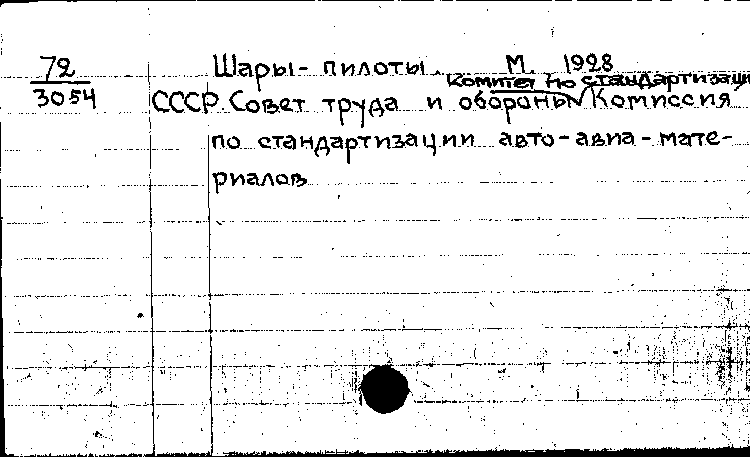 72
3054
Шары-пилоты. М. 1928
Комитет по стандартизации
СССР. Совет труда и обороны Комиссия
по стандартизации авто-авиа-мате-
риалов